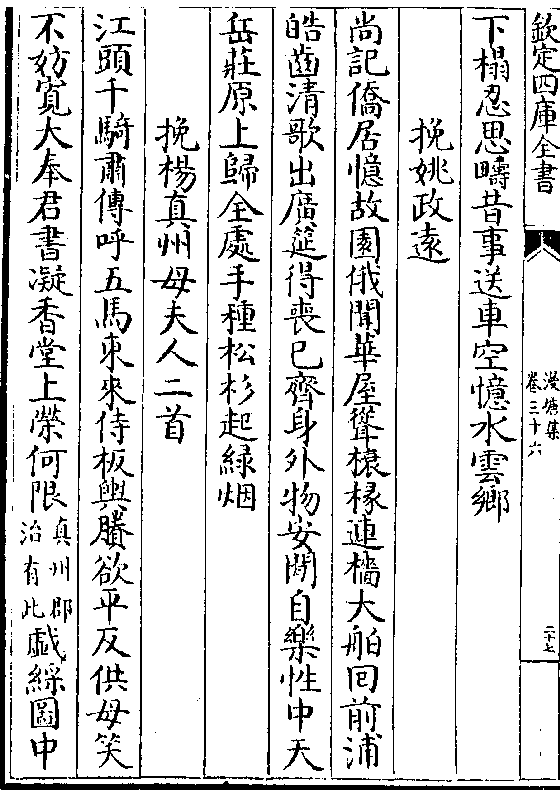 欽定四庫全書
漫塘集
卷三十六
二十七
下榻忍思疇昔事送車空憶水雲鄉
挽姚政遠
尚記僑居憶故園俄聞華屋聳榱椽連檣大舶回前浦
皓齒清歌出廣筵得喪已齊身外物安閒自樂性中天
岳莊原上歸全處手種松杉起緑烟
挽楊真州母夫人二首
江頭千騎肅傳呼五馬東來侍板輿賸欲平反供母笑
不妨寛大奉君書凝香堂上榮何限真州郡治有此戯綵圖中